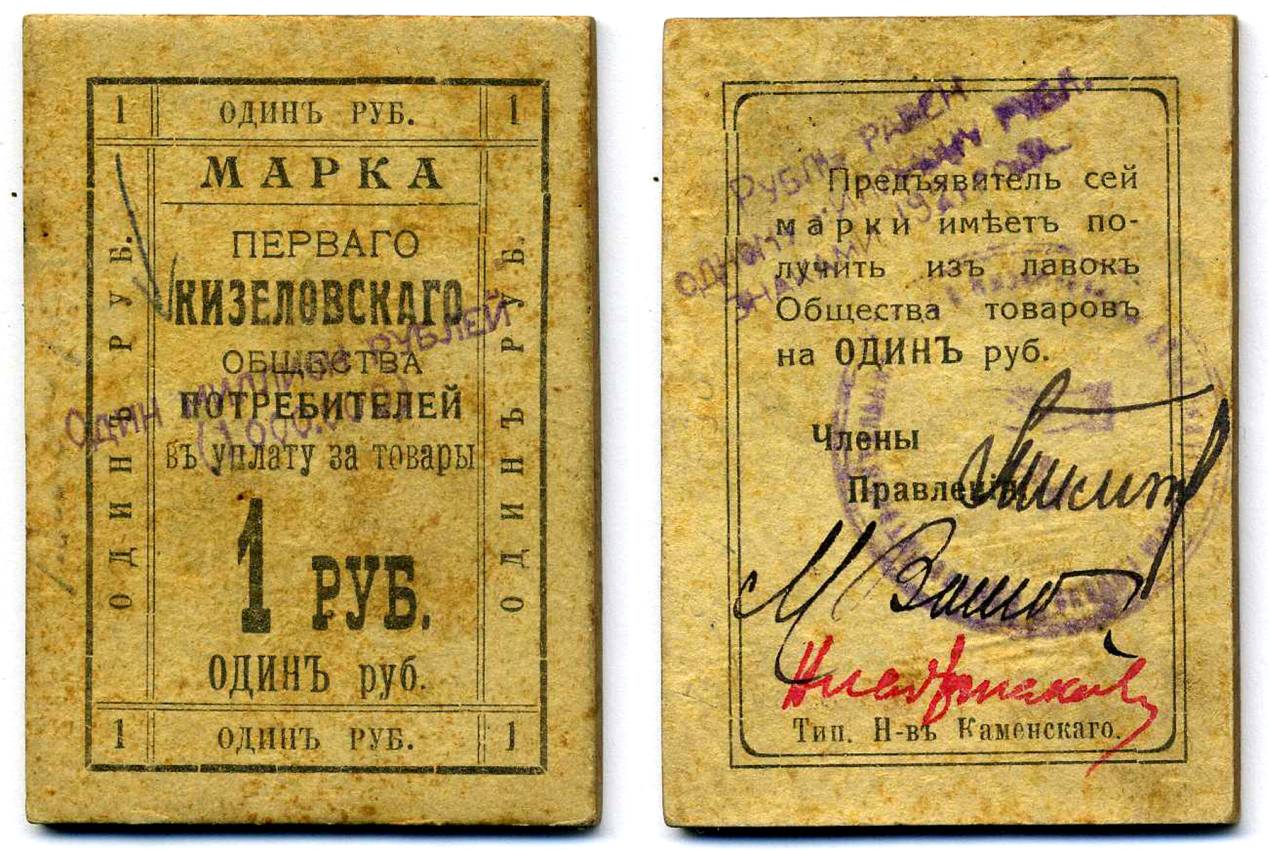 1 ОДИНЪ РУБ. 1
МАРКА
ПЕРВАГО
КИЗЕЛОВСКАГО
ОБЩЕСТВА
ПОТРЕБИТЕЛЕЙ
въ уплату за товары
1 РУБ.
ОДИНЪ руб.
1 ОДИНЪ РУБ. 1
ОДИНЪ РУБ.
ОДИНЪ РУБ.
ОДИН МИЛЛИОН РУБЛЕЙ
(1.000.000)
Предъявитель сей
марки имѣетъ по-
лучить изъ лавокъ
Общества товаровъ
на ОДИНЪ руб.
Члены
Правленія
Тип. Н-въ Каменскаго.
РУБЛЬ РАВЕН
ОДНОМУ РУБЛ.
ЗНАКАМИ 1921